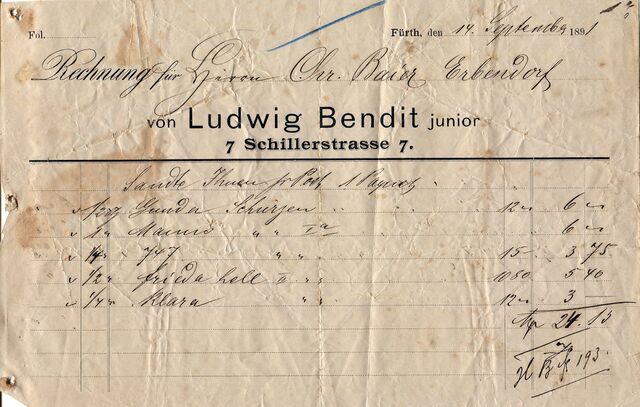 Fol. Fürth, den 14 September 1891
Rechnung für Herrn Chr. Baier Erbendorf
von Ludwig Bendit junior
7 Schillerstrasse 7.
Sandte Ihnen pr Post 1 Paquet
Gunda Schürzen 12 6
Ia 6
747 15 3 75
1/2 frieda hell II 10 80 5 40
Klara 12 3 —
24. 15